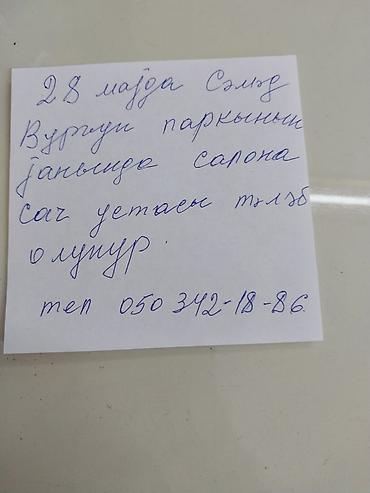 28 мајда Сәмәд
Вургун паркынын
јанында салона
сач устасы тәләб
олунур.
тел 050 342-18-86.